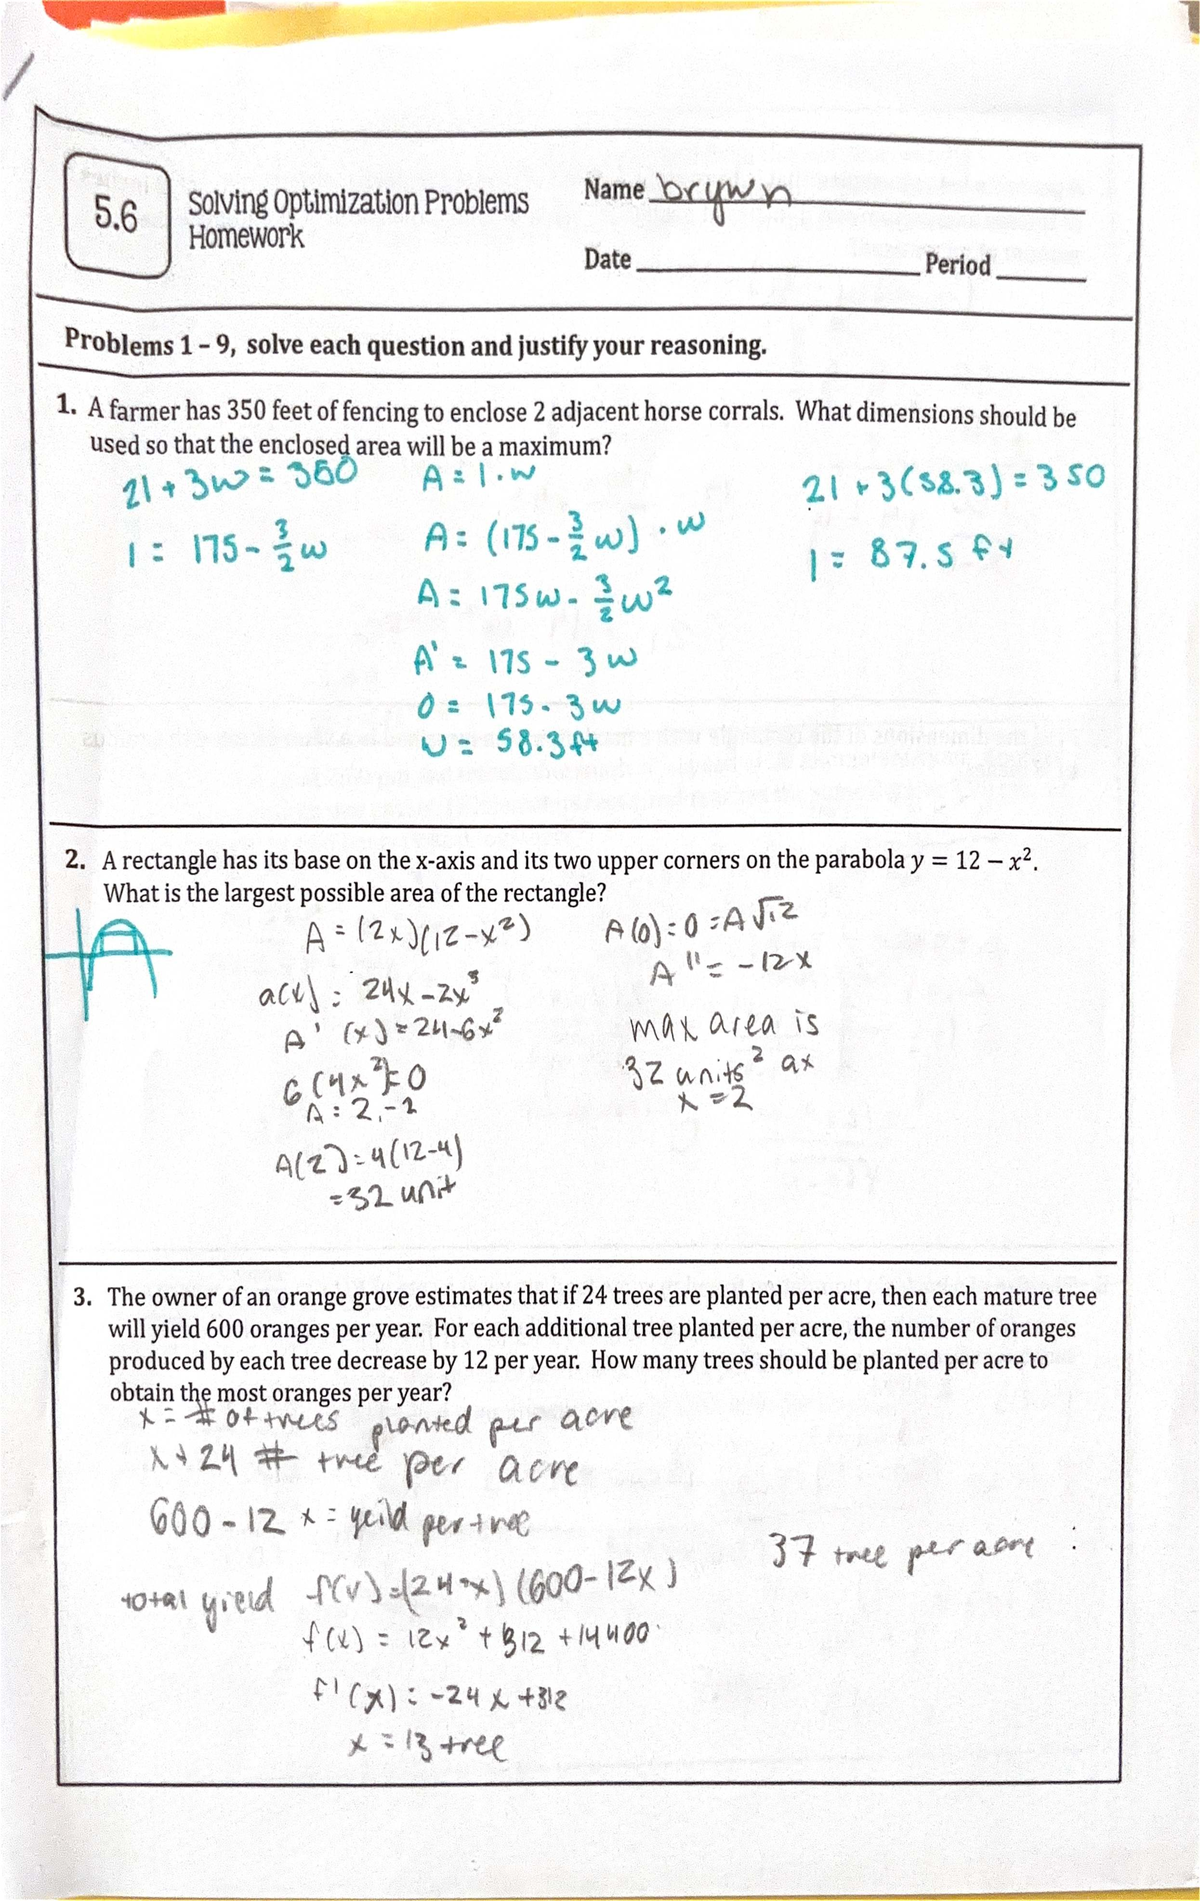 5.6
Solving Optimization Problems
Homework
Name brywn
Date
Period
Problems 1 – 9, solve each question and justify your reasoning.
1. A farmer has 350 feet of fencing to enclose 2 adjacent horse corrals. What dimensions should be
used so that the enclosed area will be a maximum?
2l + 3w = 350
l = 175 - 3/2 w
A = l · w
A = (175 - 3/2 w) · w
A = 175w - 3/2 w²
A' = 175 - 3w
0 = 175 - 3w
w = 58.3 ft
2l + 3(58.3) = 350
l = 87.5 ft
2. A rectangle has its base on the x-axis and its two upper corners on the parabola y = 12 – x².
What is the largest possible area of the rectangle?
A = (2x)(12-x²)
a(x) = 24x - 2x³
A' (x) = 24-6x²
6(4x²)=0
A = 2, -2
A(2) = 4(12-4)
= 32 unit
A(0) = 0 = A√12
A'' = -12x
max area is
32 units² ax
x = 2
3. The owner of an orange grove estimates that if 24 trees are planted per acre, then each mature tree
will yield 600 oranges per year. For each additional tree planted per acre, the number of oranges
produced by each tree decrease by 12 per year. How many trees should be planted per acre to
obtain the most oranges per year?
x = # of trees planted per acre
x + 24 # tree per acre
600 - 12 x = yeild per tree
total yield f(x) = (24+x)(600-12x)
f(x) = 12x² + 312 + 14400
f'(x) = -24x + 312
x = 13 tree
37 tree per acre :